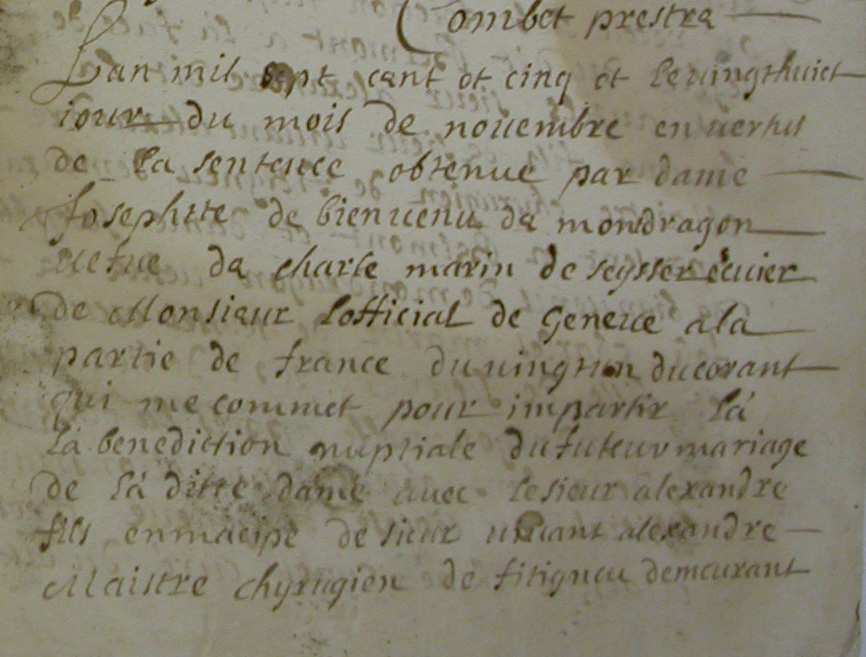 Combet prestre
Lan mil sept cent et cinq et le uingthuict
iour du mois de nouembre en uertus
de la sentence obtenue par dame
Josephtte de bienuenu de mondragon
uefue de charle marin de seysser ecuier
de Monsieur Lofficial de Geneue a la
partie de france du uingt un du corant
qui me commet pour impartir la
la benediction nuptiale du futeur mariage
de la ditte dame auec le sieur alexandre
fils enmacipé de sieur uincant alexandre
Maistre chyrugien de titigneu demeurant